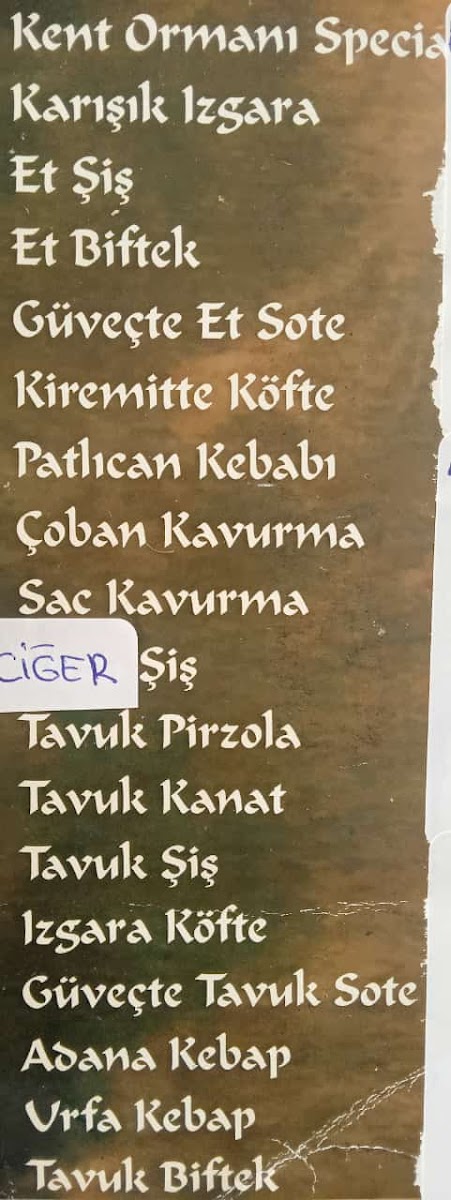 Kent Ormanı Specia
Karışık Izgara
Et Şiş
Et Biftek
Güveçte Et Sote
Kiremitte Köfte
Patlıcan Kebabı
Çoban Kavurma
Sac Kavurma
CİĞER Şiş
Tavuk Pirzola
Tavuk Kanat
Tavuk Şiş
Izgara Köfte
Güveçte Tavuk Sote
Adana Kebap
Urfa Kebap
Tavuk Biftek